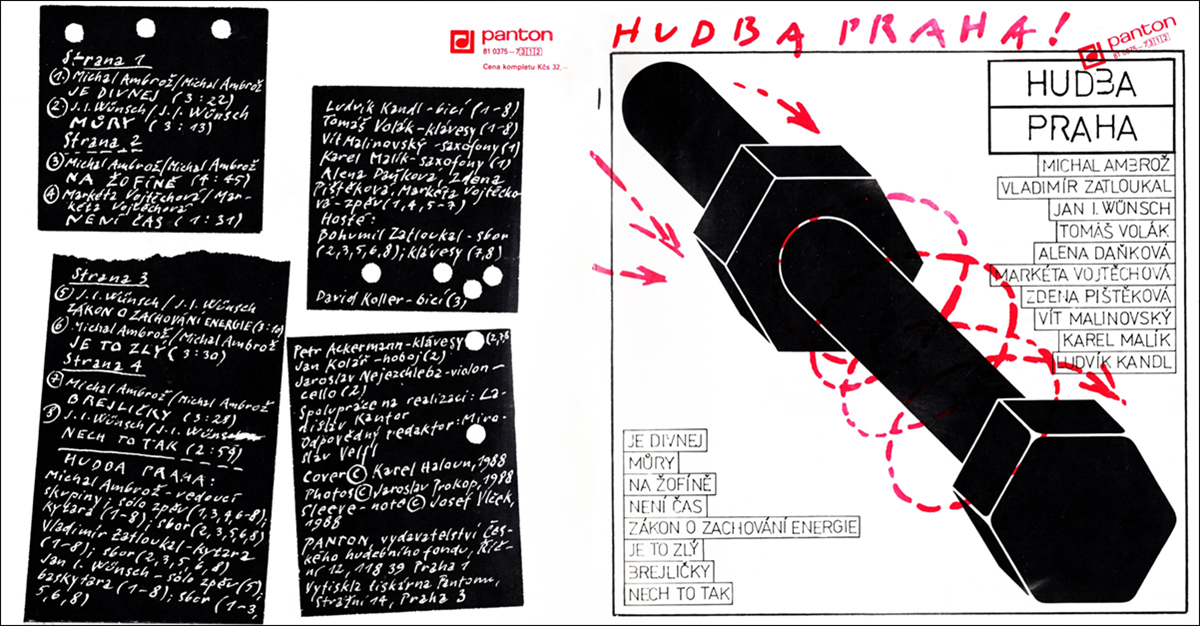 Strana 1
① Michal Ambrož/Michal Ambrož
JE DIVNEJ (3:22)
② J.I. Wünsch/J.I. Wünsch
MŮRY (3:13)
Strana 2
③ Michal Ambrož/Michal Ambrož
NA ŽOFÍNĚ (4:45)
④ Markéta Vojtěchová/Mar-
kéta Vojtěchová
NENÍ ČAS (1:31)
Strana 3
⑤ J.I. Wünsch/J.I. Wünsch
ZÁKON O ZACHOVÁNÍ ENERGIE (3:10)
⑥ Michal Ambrož/Michal Ambrož
JE TO ZLÝ (3:30)
Strana 4
⑦ Michal Ambrož/Michal Ambrož
BREJLIČKY (3:28)
⑧ J.I. Wünsch/J.I. Wünsch
NECH TO TAK (2:59)
HUDBA PRAHA:
Michal Ambrož-vedoucí
skupiny; sólo zpěv (1,3,4,6-8);
kytara (1-8); sbor (2,3,5,6,8)
Vladimír Zatloukal-kytara
(1-8); sbor (2,3,5,6,8)
Jan I. Wünsch-sólo zpěv (5);
baskytara (1-8); sbor (1-3,
5,6,8)
panton
81 0375-7 312
Cena kompletu Kčs 32,-
Ludvík Kandl-bicí (1-8)
Tomáš Volák-klávesy (1-8)
Vít Malinovský-saxofony (1)
Karel Malík-saxofony (1)
Alena Daňková, Zdena
Pištěková, Markéta Vojtěcho-
vá-zpěv (1,4,5-7)
Hosté:
Bohumil Zatloukal-sbor
(2,3,5,6,8); klávesy (7,8)
David Koller-bicí (3)
Petr Ackermann-klávesy (2,7,8
Jan Kolář-hoboj (2)
Jaroslav Nejezchleba-violon-
cello (2)
Spolupráce na realizaci: La-
dislav Kantor
Odpovědný redaktor: Miro-
slav Velfl
Cover © Karel Haloun, 1988
Photos © Jaroslav Prokop, 1988
Sleeve-note © Josef Vlček,
1988
PANTON, vydavatelství Čes-
kého hudebního fondu, Říč-
ní 12, 118 39 Praha 1
Vytiskla tiskárna Pantonu,
Strážní 14, Praha 3
HUDBA PRAHA!
panton
81 0375-7312
HUDBA
PRAHA
MICHAL AMBROŽ
VLADIMÍR ZATLOUKAL
JAN I. WÜNSCH
TOMÁŠ VOLÁK
ALENA DAŇKOVÁ
MARKÉTA VOJTĚCHOVÁ
ZDENA PIŠTĚKOVÁ
VÍT MALINOVSKÝ
KAREL MALÍK
LUDVÍK KANDL
JE DIVNEJ
MŮRY
NA ŽOFÍNĚ
NENÍ ČAS
ZÁKON O ZACHOVÁNÍ ENERGIE
JE TO ZLÝ
BREJLIČKY
NECH TO TAK